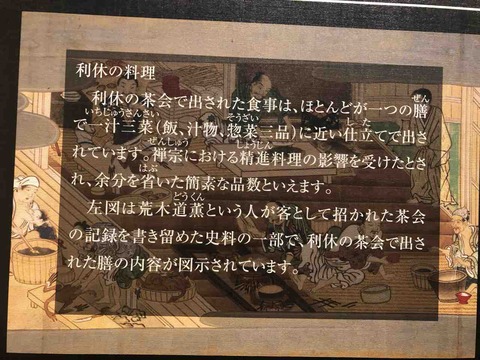 利休の料理
利休の茶会で出された食事は、ほとんどが一つの膳
で一汁三菜(飯、汁物、惣菜三品)に近い仕立てで出さ
れています。禅宗における精進料理の影響を受けたとさ
れ、余分を省いた簡素な品数といえます。
左図は荒木道薫という人が客として招かれた茶会
の記録を書き留めた史料の一部で、利休の茶会で出さ
れた膳の内容が図示されています。